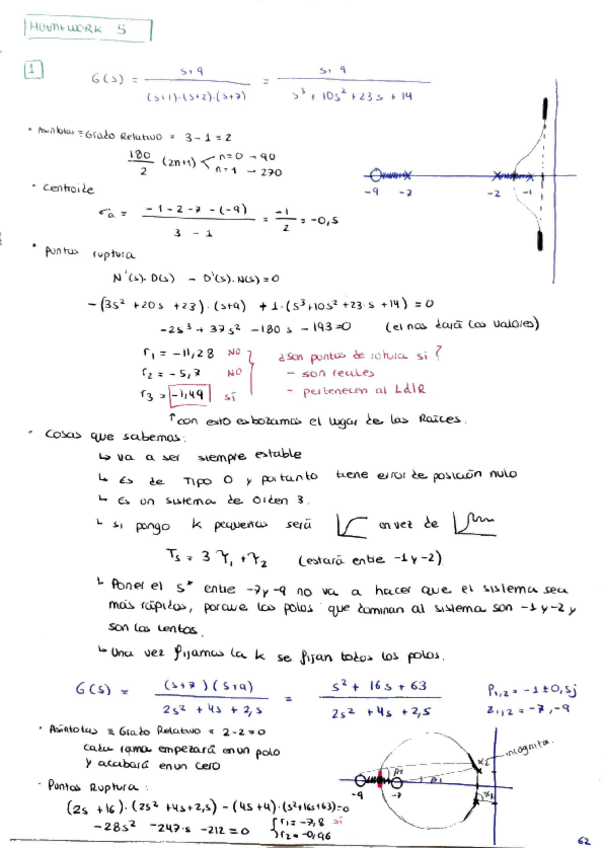 HOMEWORK 5
1
G(s) = s+9 / (s+1)·(s+2)·(s+7) = s+9 / s³ + 10s² + 23s + 14
• Asíntotas ≡ Grado Relativo = 3-1 = 2
180/2 (2n+1) < n=0 → 90
n=1 → 270
-9 -7 -2 -1
• Centroide
σa = -1-2-7-(-9) / 3-1 = -1/2 = -0,5
• Puntos ruptura
N'(s)·D(s) - D'(s)·N(s) = 0
-(3s² + 20s + 23)·(s+9) + 1·(s³+10s²+23·s+14) = 0
-2s³ + 37s² - 180s - 193=0 (el nos dará los valores)
r1 = -11,28 NO
r2 = -5,7 NO
r3 = -1,49 sí
¿Son puntos de rotura si?
- son reales
- pertenecen al LdlR
↑ con esto esbozamos el lugar de las Raíces.
• Cosas que sabemos:
↳ va a ser siempre estable
↳ es de Tipo 0 y portanto tiene error de posición nulo
↳ es un sistema de orden 3.
↳ si pongo k pequeñas será en vez de
Ts = 3 τ1 + τ2 (estará entre -1 y -2)
↳ Poner el s* entre -7 y -9 no va a hacer que el sistema sea
más rápidos, porque los polos que dominan al sistema son -1 y -2 y
son los lentos.
↳ Una vez fijamos la k se fijan todos los polos.
G(s) = (s+7)(s+9) / 2s² + 4s + 2,5 = s² + 16s + 63 / 2s² + 4s + 2,5
P1,2 = -1 ± 0,5j
Z1,2 = -7, -9
• Asíntotas ≡ Grado Relativo = 2-2=0
cada rama empezará en un polo
y acabará en un cero
incógnita.
-9 -7
• Puntos Ruptura:
(2s+16)·(2s²+4s+2,5) - (4s+4)·(s²+16s+63)=0
-28s² - 247·s - 212 = 0 { r1 = -7,8 sí
r2 = -0,96
62